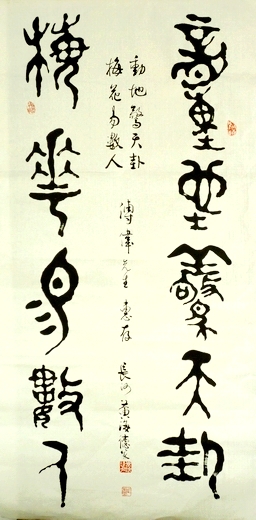 動地驚天卦
梅花易數人
動地驚天卦
梅花易數人
傅偉先生 惠存
長沙 黃海